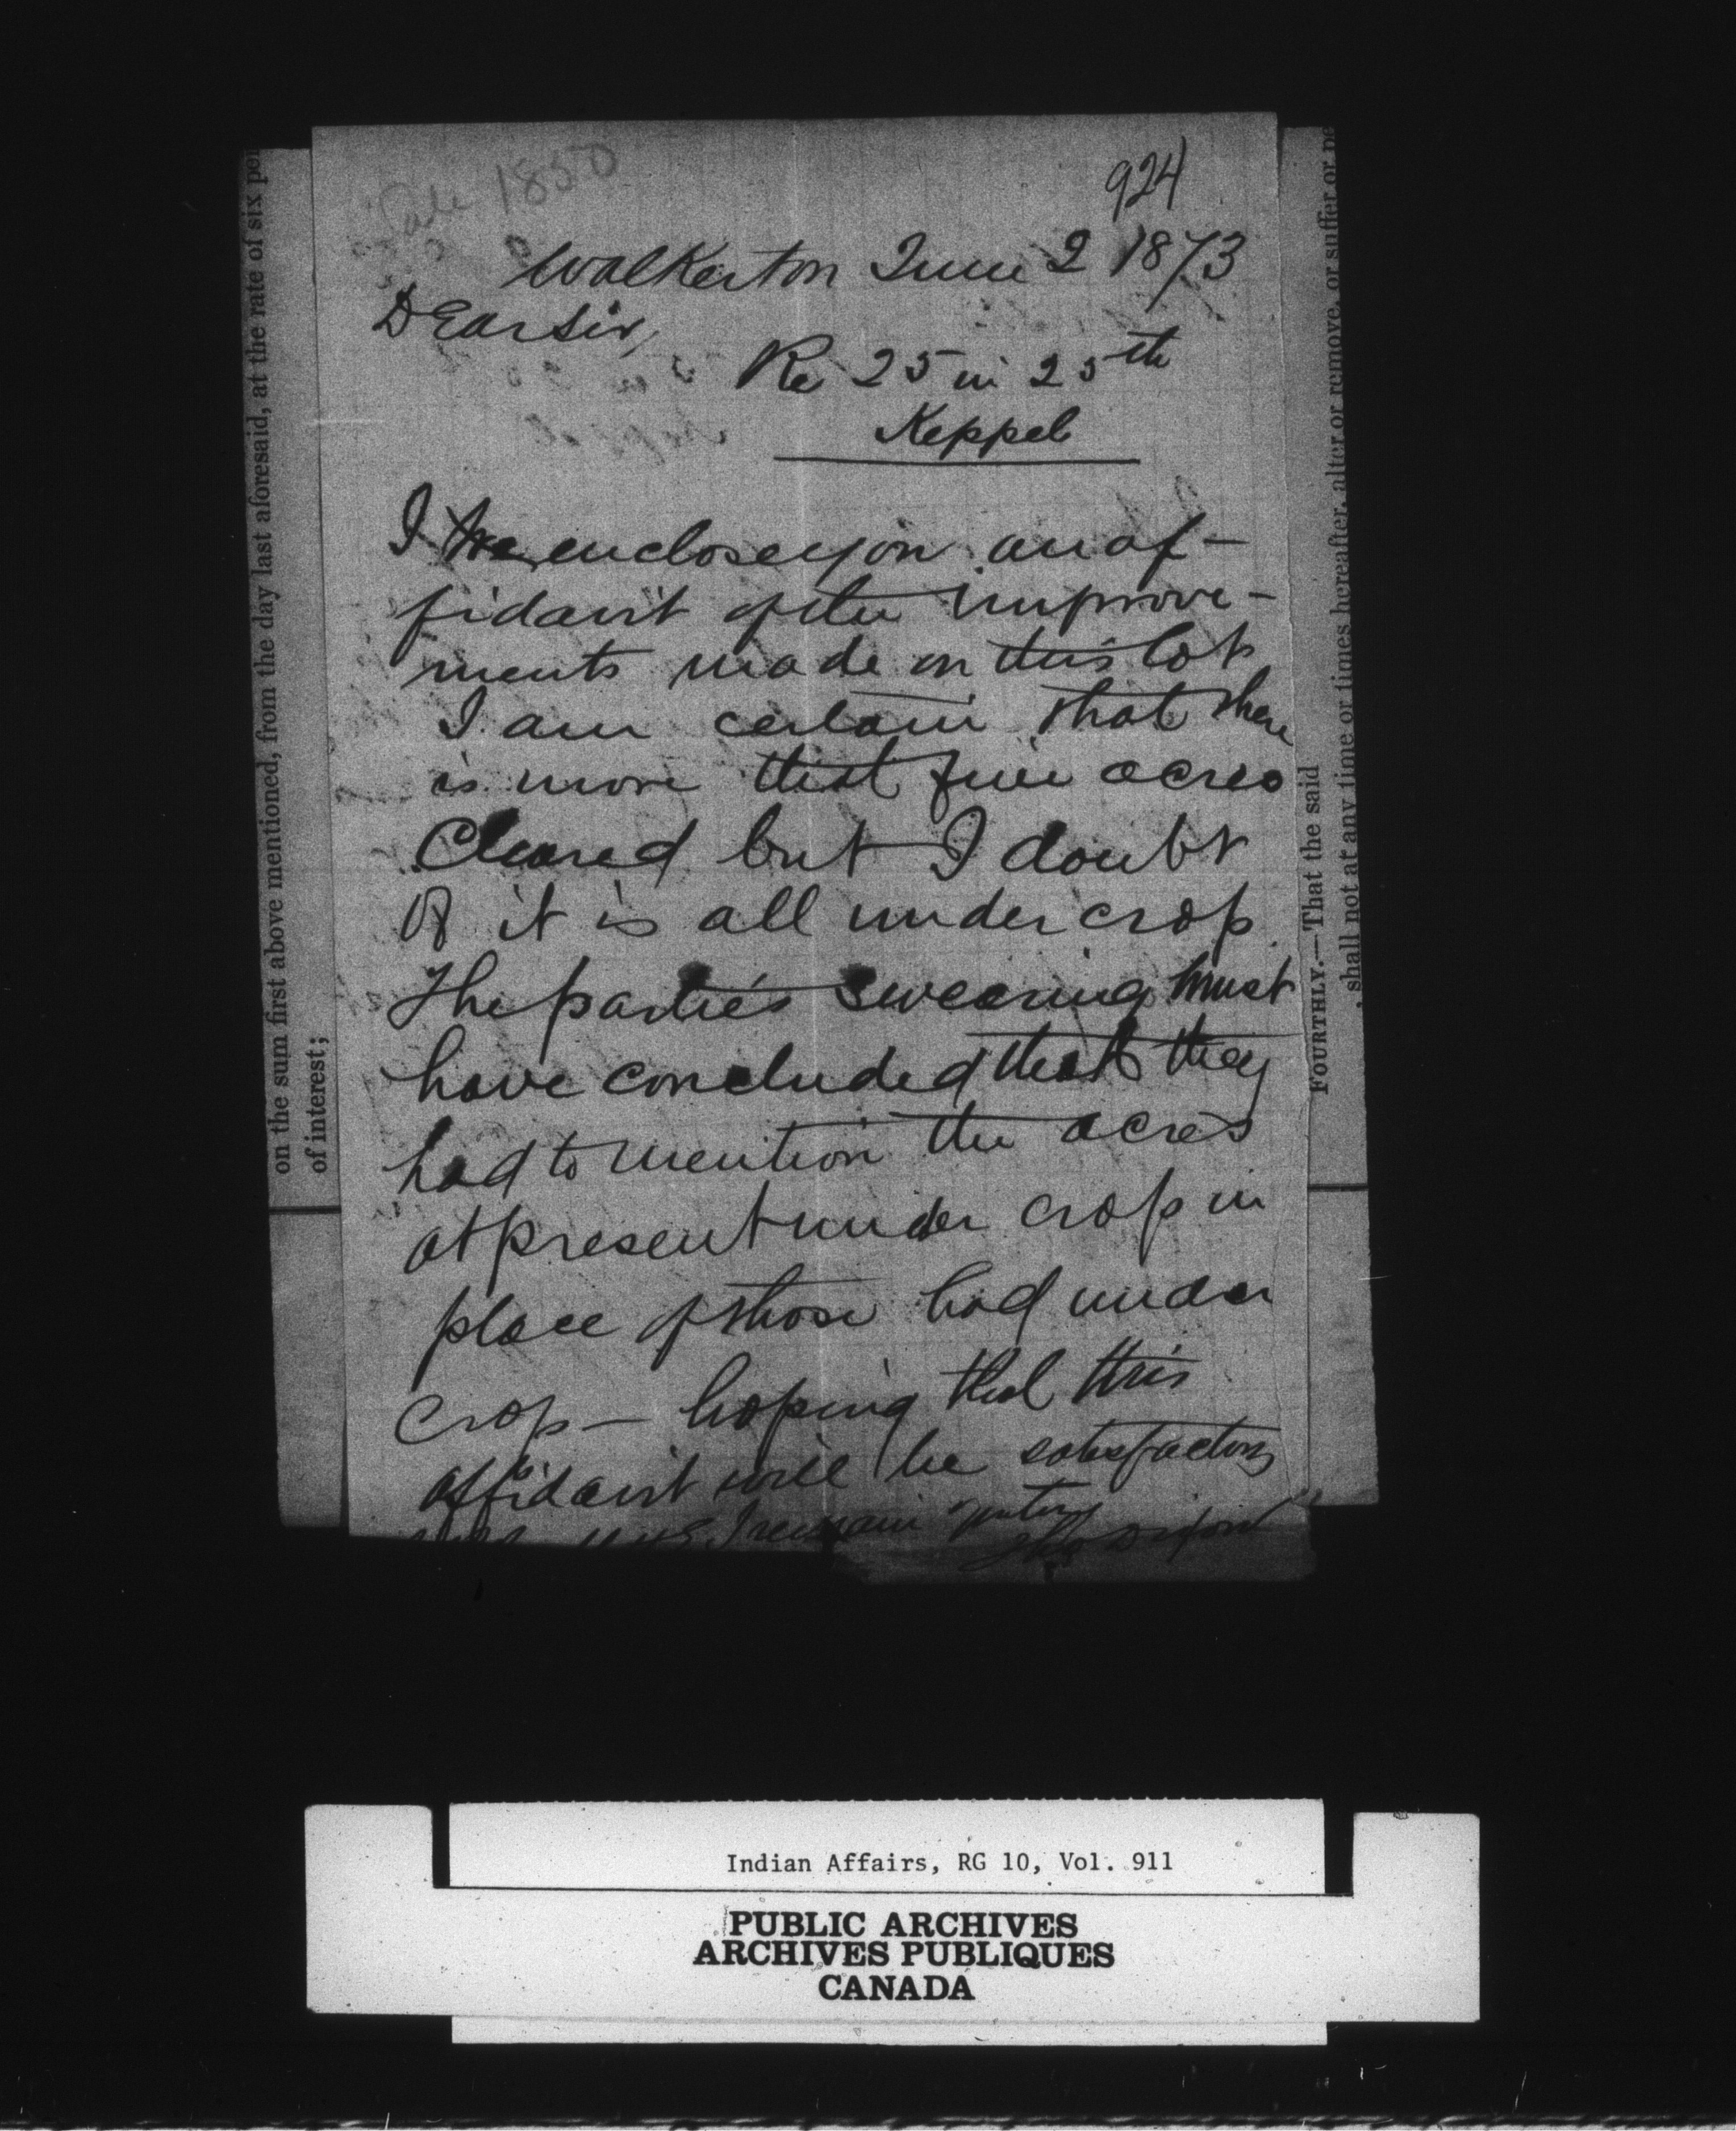 Sale 1850
924
Walkerton June 2 1873
DEar Sir,
Re 25 in 25th
Keppel
I enclose you an af-
fidavit of the improve-
ments made on this lot
I am certain that there
is more that five acres
Cleared but I doubt
if it is all under crop
The parties swearing must
have concluded that they
had to mention the acres
at present under crop in
place of those had under
crop — hoping that this
affidavit will be satisfactory
I remain yours
Dixon
on the sum first above mentioned, from the day last aforesaid, at the rate of six
of interest;
FOURTHLY.—That the said
, shall not at any time or times hereafter, alter or remove, or suffer or
Indian Affairs, RG 10, Vol. 911
PUBLIC ARCHIVES
ARCHIVES PUBLIQUES
CANADA